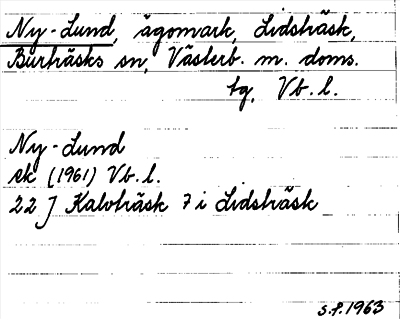 Ny-Lund, ägomark, Lidsträsk,
Burträsks sn, Västerb. m. doms.
tg, Vb. l.
Ny-Lund
ek (1961) Vb. l.
22 J Kalvträsk 7 i Lidsträsk
S.P. 1963